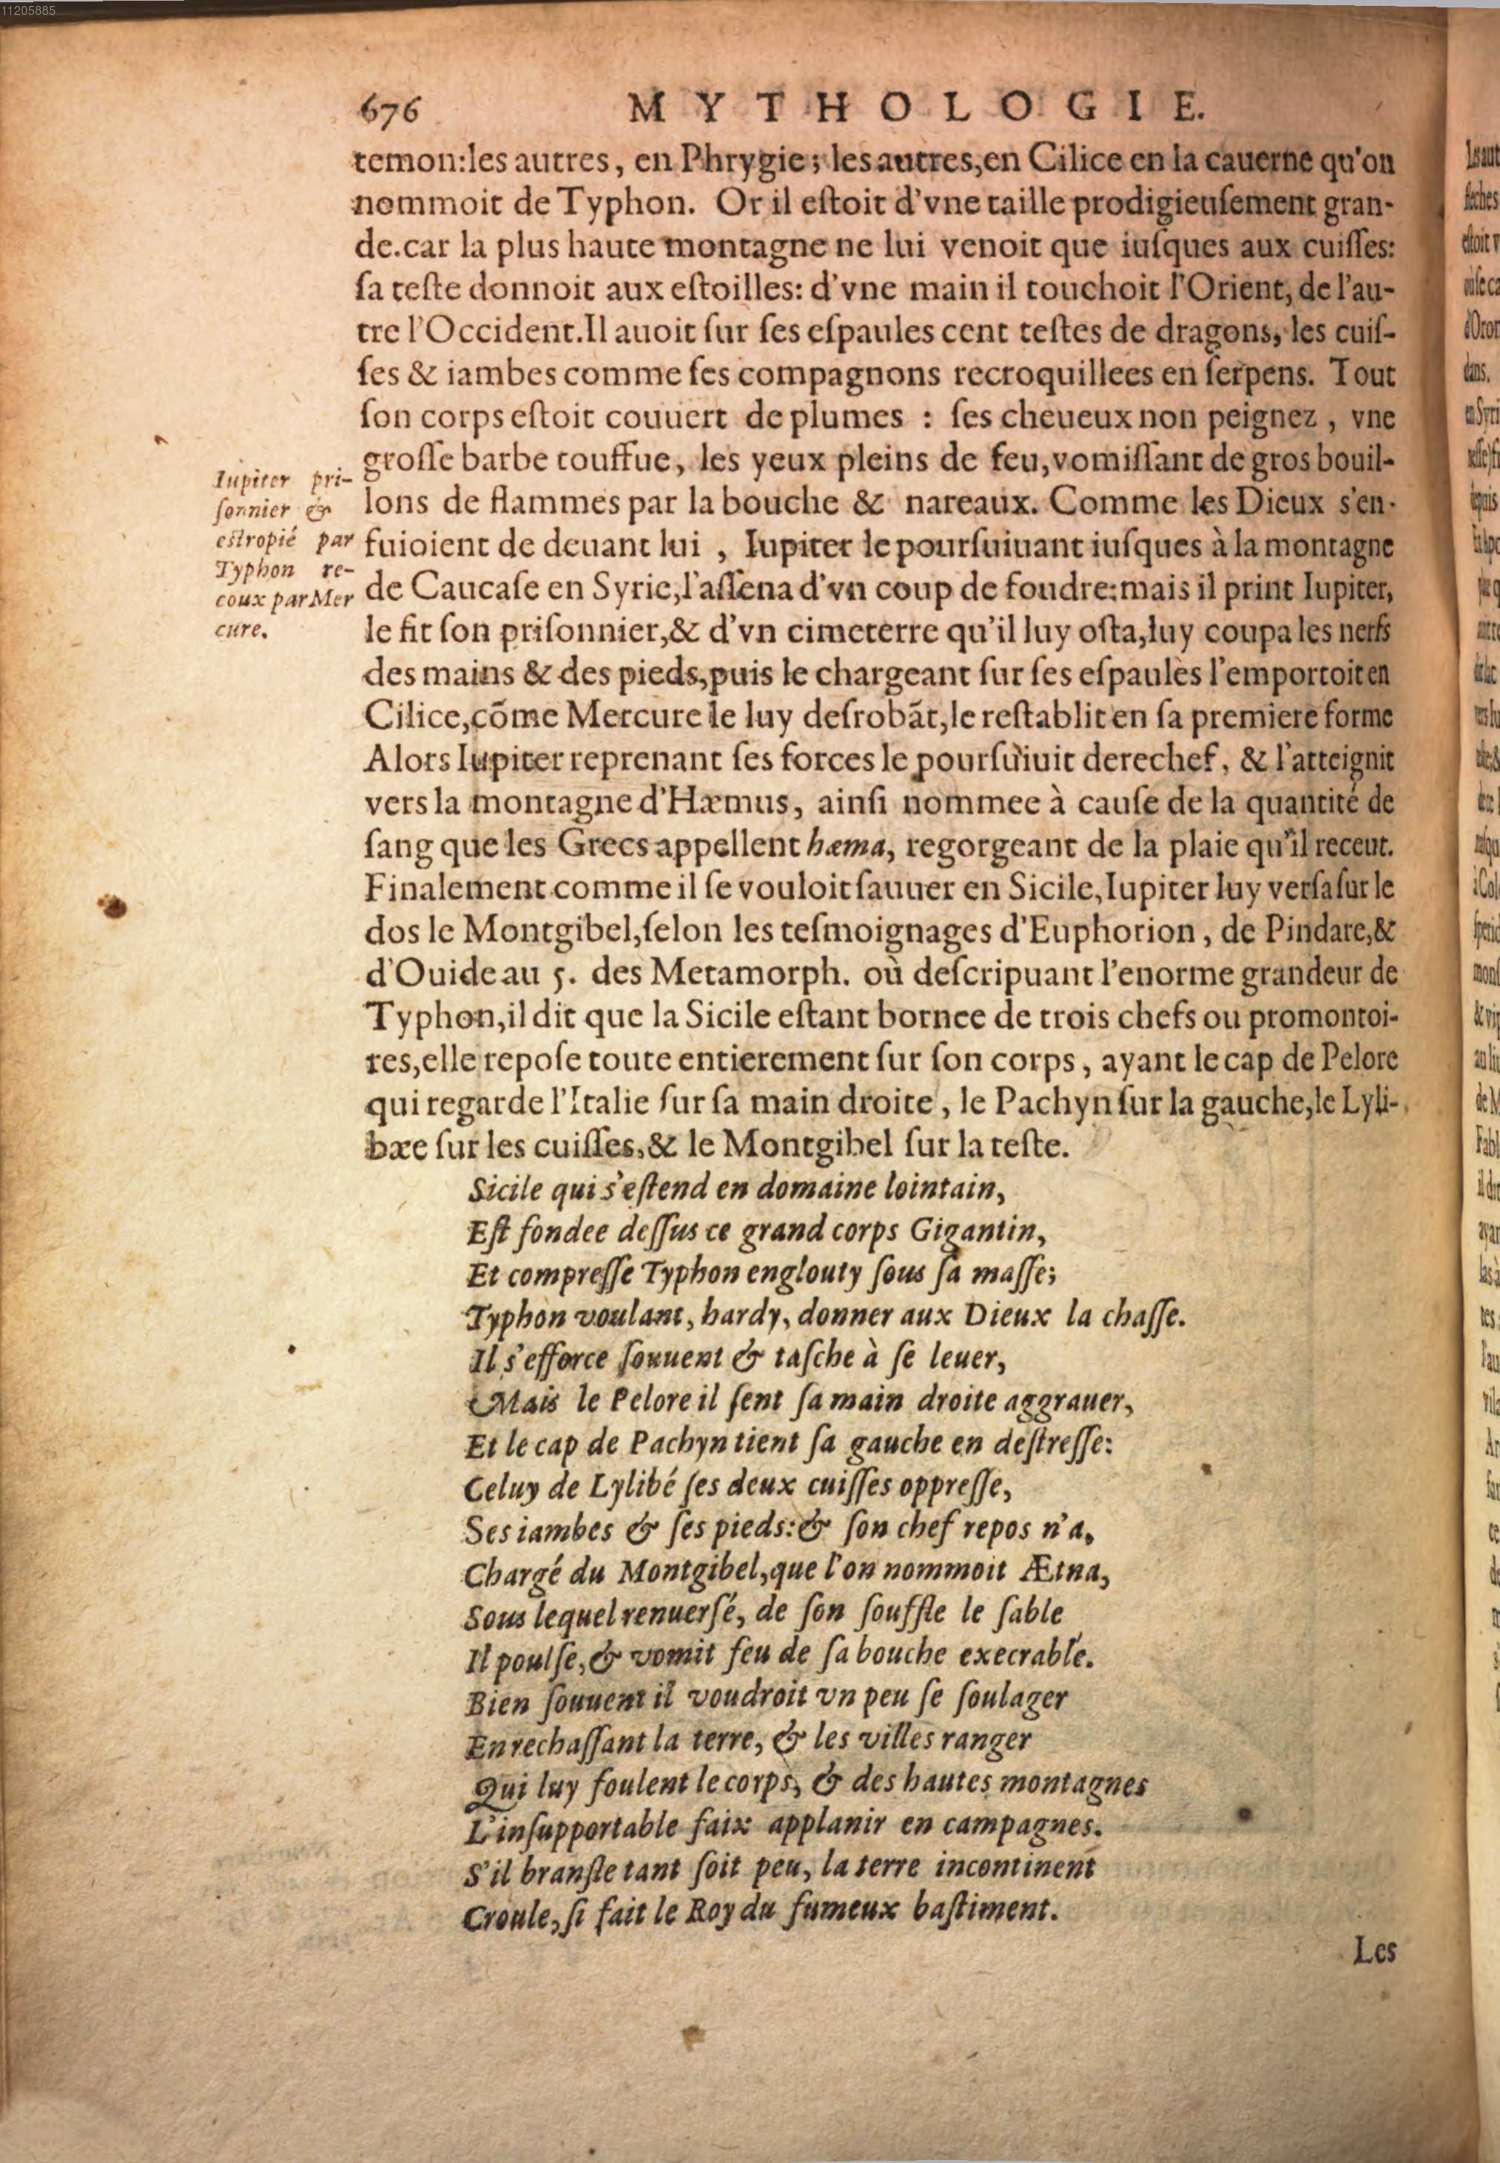 11205885
676 MYTHOLOGIE.
temon:les autres, en Phrygie; les autres,en Cilice en la cauerne qu'on
nommoit de Typhon. Or il eſtoit d'vne taille prodigieuſement gran-
de.car la plus haute montagne ne lui venoit que iuſques aux cuiſſes:
ſa teſte donnoit aux eſtoilles: d'vne main il touchoit l'Orient, de l'au-
tre l'Occident.Il auoit ſur ſes eſpaules cent teſtes de dragons, les cuiſ-
ſes & iambes comme ſes compagnons recroquillees en ſerpens. Tout
ſon corps eſtoit couuert de plumes : ſes cheueux non peignez , vne
groſſe barbe touffue, les yeux pleins de feu,vomiſſant de gros bouil-
lons de flammes par la bouche & nareaux. Comme les Dieux s'en-
fuioient de deuant lui , Iupiter le pourſuiuant iuſques à la montagne
de Caucaſe en Syrie,l'aſſena d'vn coup de foudre:mais il print Iupiter,
le fit ſon priſonnier,& d'vn cimeterre qu'il luy oſta,luy coupa les nerfs
des mains & des pieds,puis le chargeant ſur ſes eſpaules l'emportoit en
Cilice,cõme Mercure le luy deſrobãt,le reſtablit en ſa premiere forme
Alors Iupiter reprenant ſes forces le pourſuiuit derechef, & l'atteignit
vers la montagne d'Hæmus, ainſi nommee à cauſe de la quantité de
ſang que les Grecs appellent hæma, regorgeant de la plaie qu'il receut.
Finalement comme il ſe vouloit ſauuer en Sicile,Iupiter luy verſa ſur le
dos le Montgibel,ſelon les teſmoignages d'Euphorion , de Pindare,&
d'Ouide au 5. des Metamorph. où deſcripuant l'enorme grandeur de
Typhon,il dit que la Sicile eſtant bornee de trois chefs ou promontoi-
res,elle repoſe toute entierement ſur ſon corps , ayant le cap de Pelore
qui regarde l'Italie ſur ſa main droite , le Pachyn ſur la gauche,le Lyli-
bæe ſur les cuiſſes,& le Montgibel ſur la teſte.
Iupiter pri-
ſonnier &
eſtropié par
Typhon re-
coux par Mer
cure.
Sicile qui s'eſtend en domaine lointain,
Eſt fondee deſſus ce grand corps Gigantin,
Et compreſſe Typhon englouty ſous ſa maſſe;
Typhon voulant, hardy, donner aux Dieux la chaſſe.
Il s'efforce ſouuent & taſche à ſe leuer,
Mais le Pelore il ſent ſa main droite aggrauer,
Et le cap de Pachyn tient ſa gauche en deſtreſſe:
Celuy de Lylibé ſes deux cuiſſes oppreſſe,
Ses iambes & ſes pieds:& ſon chef repos n'a,
Chargé du Montgibel,que l'on nommoit Ætna,
Sous lequel renuerſé, de ſon ſouffle le ſable
Il poulſe,& vomit feu de ſa bouche execrable.
Bien ſouuent il voudroit vn peu ſe ſoulager
En rechaſſant la terre, & les villes ranger
Qui luy foulent le corps, & des hautes montagnes
L'inſupportable faix applanir en campagnes.
S'il branſle tant ſoit peu, la terre incontinent
Croule,ſi fait le Roy du fumeux baſtiment.
Les